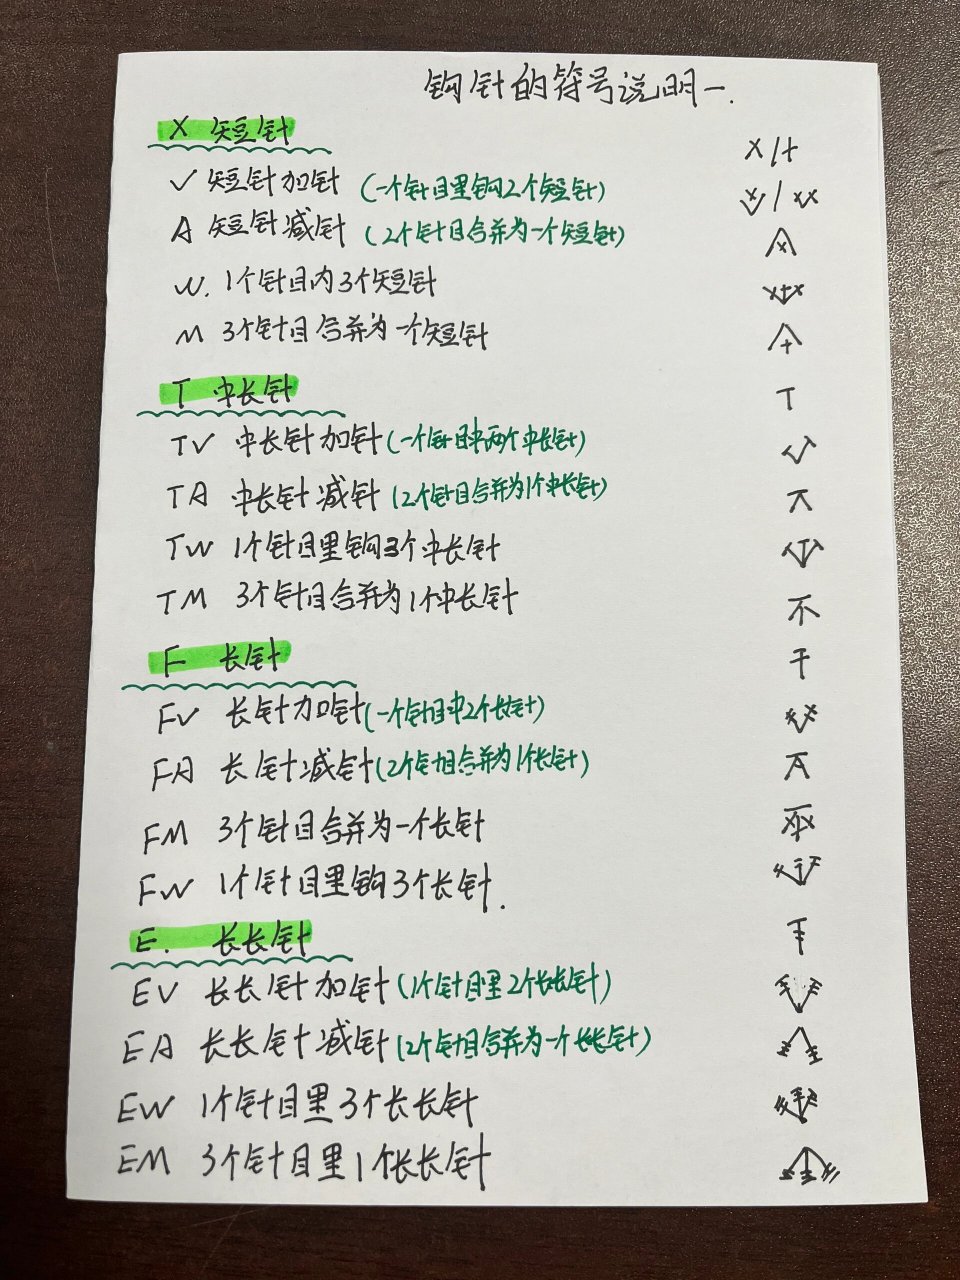 钩针的符号说明一.
X 短针 X/+
V 短针加针 (一个针目里钩2个短针)
A 短针减针 (2个针目合并为一个短针)
W. 1个针目内3个短针
M 3个针目合并为一个短针
T 中长针 T
TV 中长针加针(一个针目中两个中长针)
TA 中长针减针(2个针目合并为1个中长针)
TW 1个针目里钩3个中长针
TM 3个针目合并为1个中长针
F 长针
FV 长针加针(一个针目中2个长针)
FA 长针减针(2个针目合并为1个长针)
FM 3个针目合并为一个长针
FW 1个针目里钩3个长针.
E. 长长针
EV 长长针加针(1个针目里2个长长针)
EA 长长针减针(2个针目合并为一个长长针)
EW 1个针目里3个长长针
EM 3个针目里1个长长针